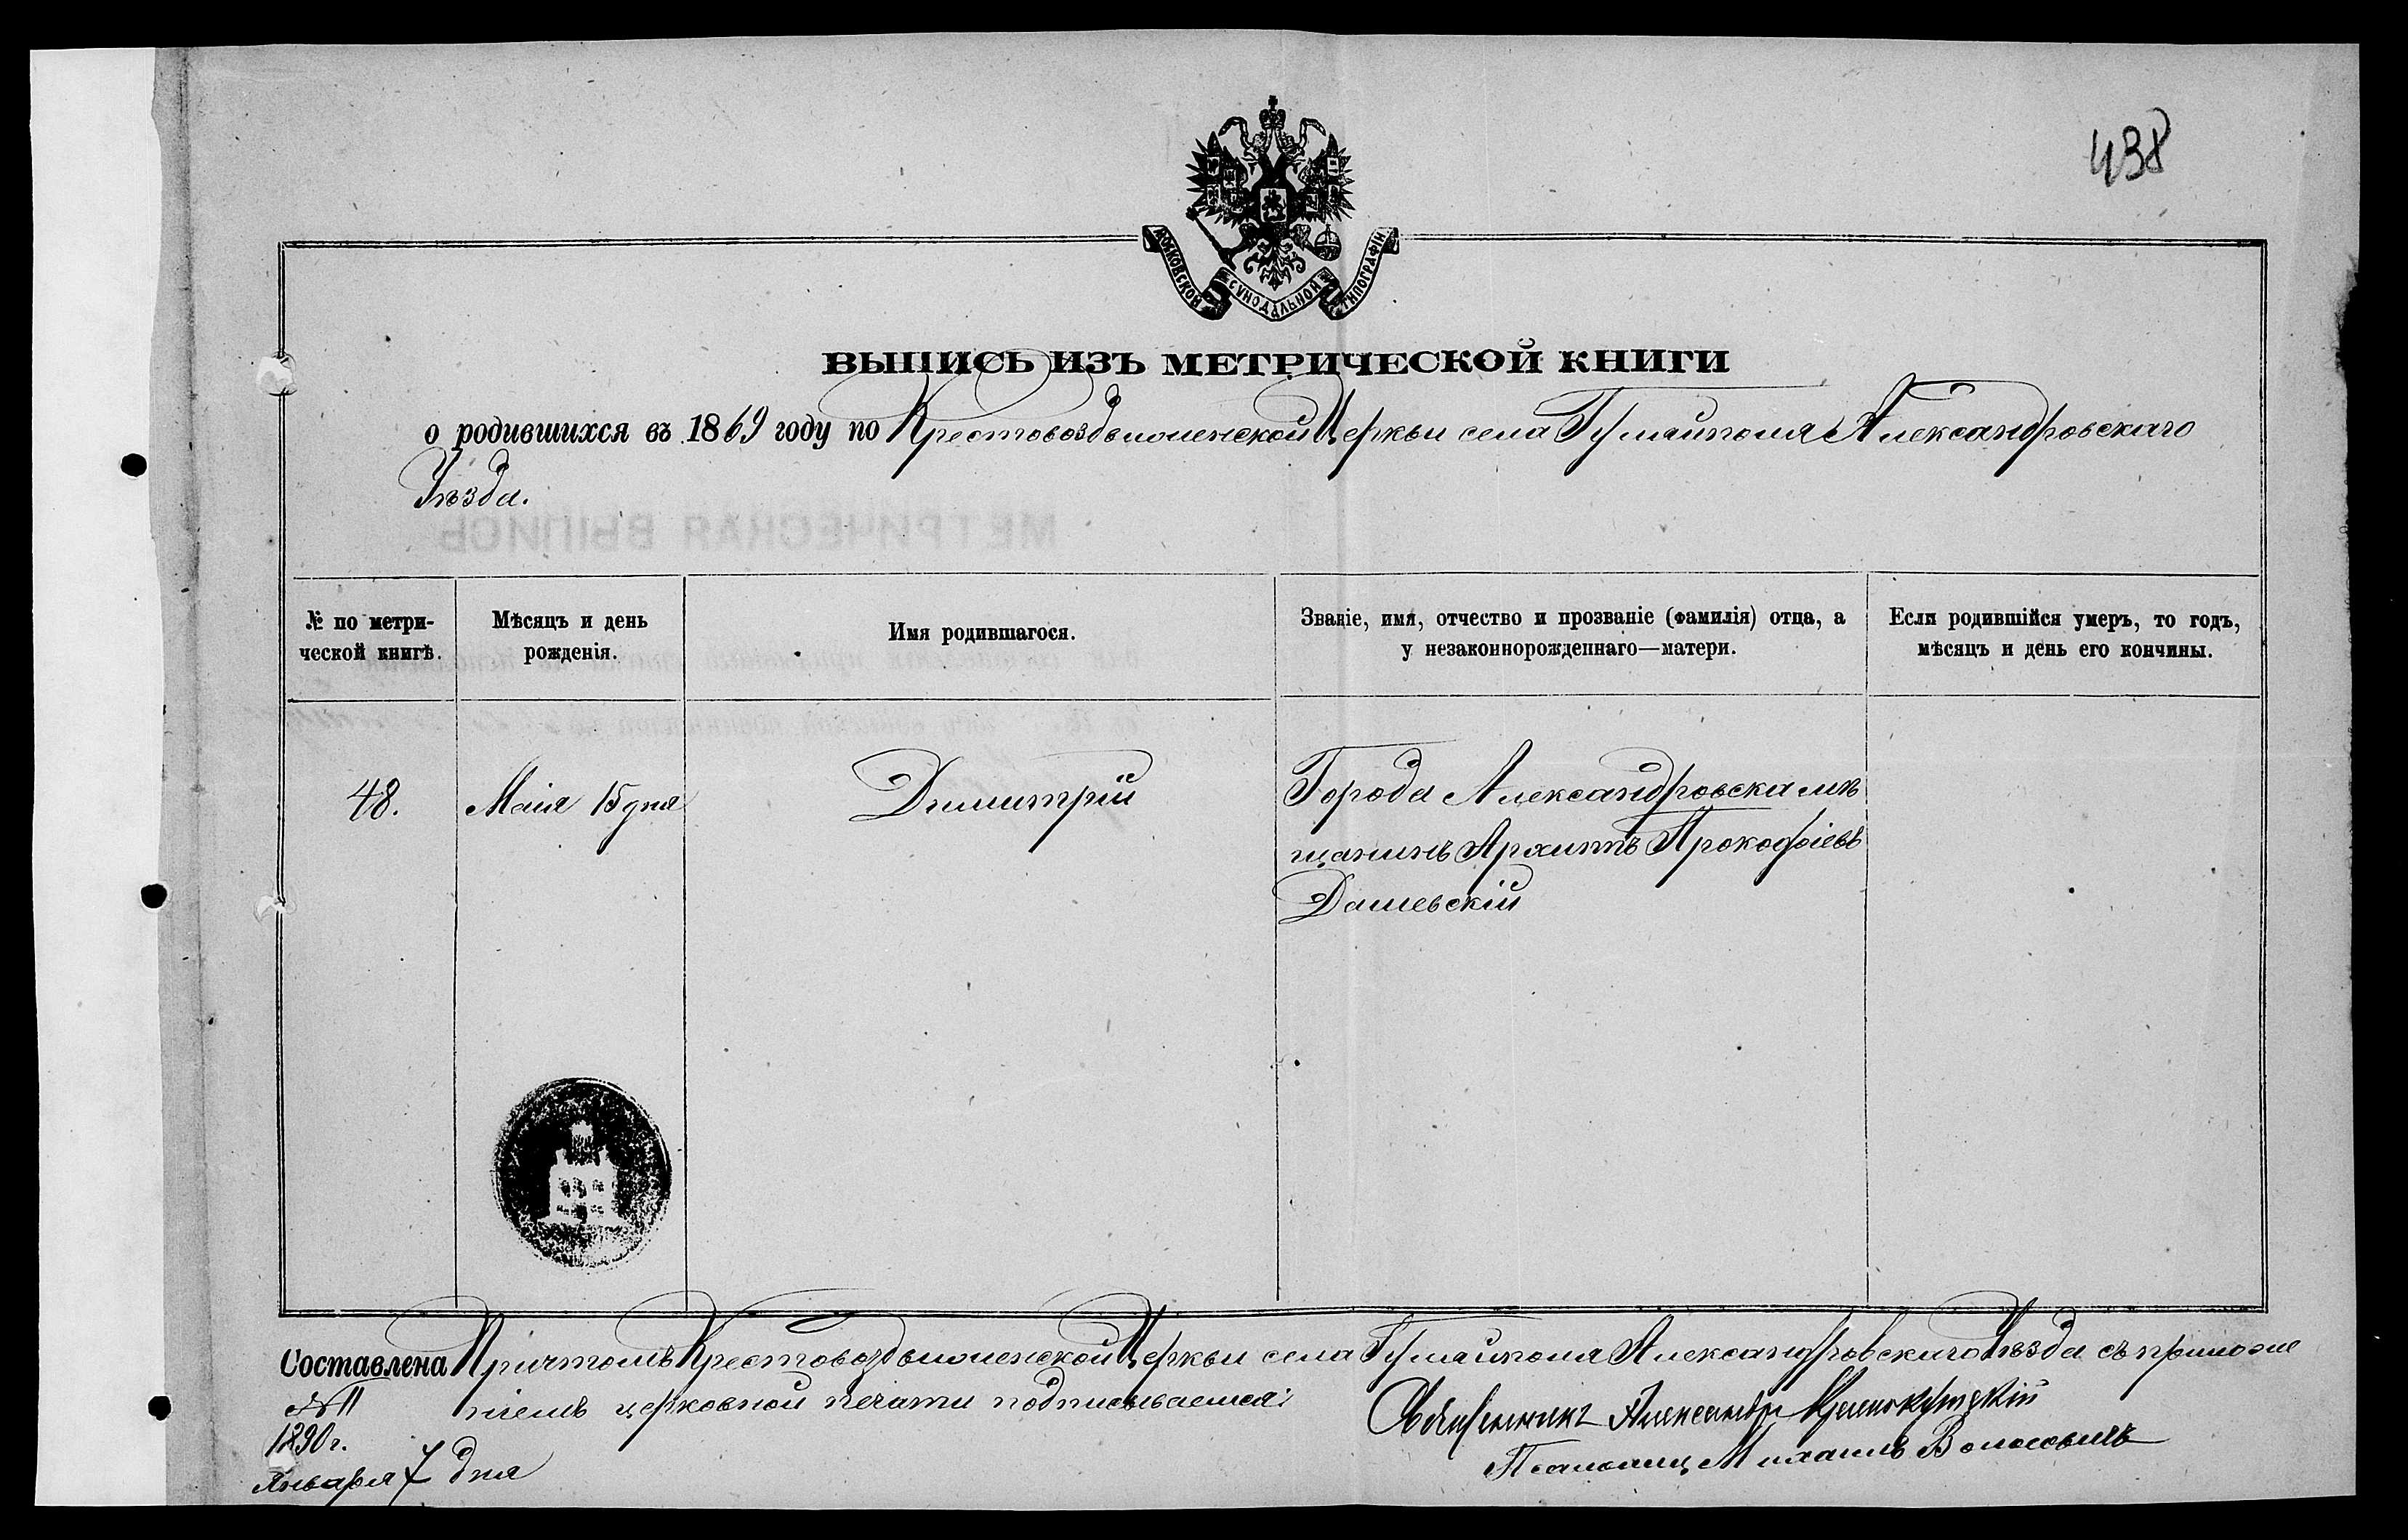 438
МОСКОВСКОЙ СѴНОДАЛЬНОЙ ТИПОГРАФІИ
ВЫПИСЬ ИЗЪ МЕТРИЧЕСКОЙ КНИГИ
о родившихся въ 1869 году по Крестовоздвиженской Церкви села Гуляйполя Александровскаго
Уѣзда.
№ по метри-
ческой книгѣ.
Мѣсяцъ и день
рожденія.
Имя родившагося.
Званіе, имя, отчество и прозваніе (фамилія) отца, а
у незаконнорожденнаго—матери.
Если родившійся умеръ, то годъ,
мѣсяцъ и день его кончины.
48.
Маія 15 дня
Димитрій
Города Александровска мѣ
щанинъ Архипъ Прокофіевъ
Дашевскій
Составлена Причтомъ Крестовоздвиженской Церкви села Гуляйполя Александровскаго Уѣзда съ приложе
ніемъ церковной печати подписываемся:
№ 11
1890 г.
Января 7 дня
Священникъ Александръ
Псаломщ Михаилъ Волосовичъ
МЕТРИЧЕСКАЯ ВЫПИСЬ